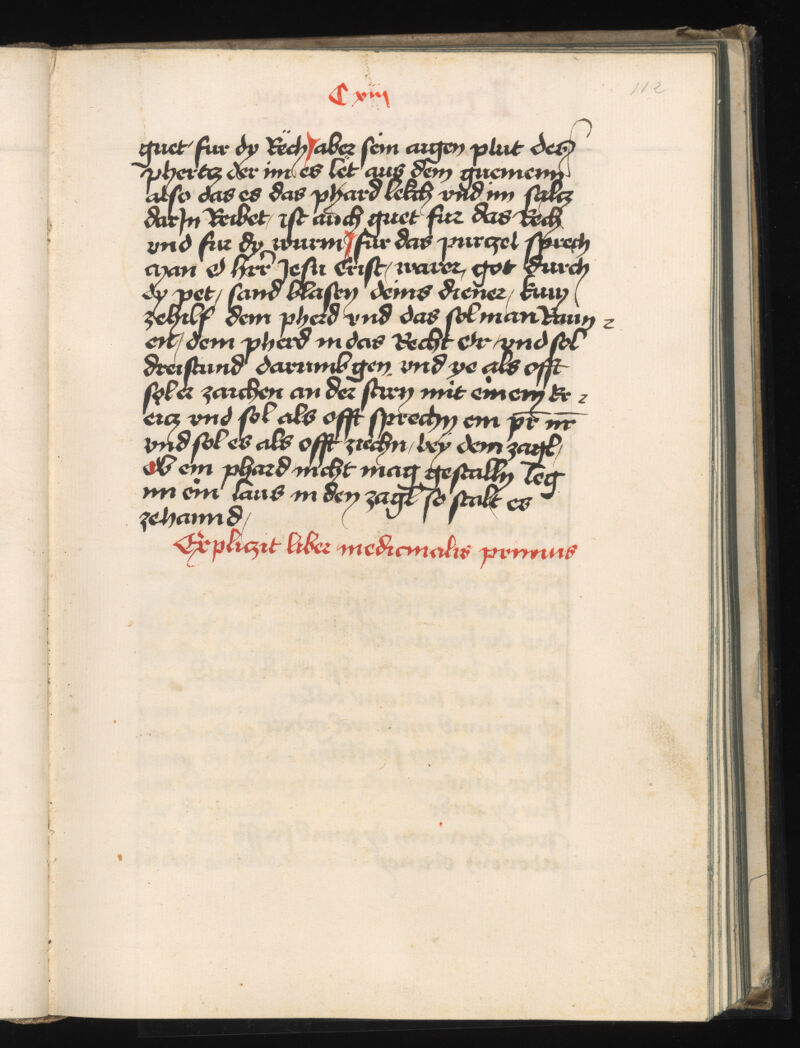 C xiii
112
guet fur dy Rech aber sein augen plut des
phertz der im es let aus dem guemenn
also das es das phard lekch vnd im saltz
darJn Reibet ist auch guet fur das Rech
vnd fur dy wurm fur das purtzel sprech
man O hrr Jesu Crist warer got durch
dy pet sand blasen deins diener kum
zehilf dem pherd vnd das sol man Raun
en dem pherd in das Recht Or vnd sol
dreistund darumb gen vnd ye als offt
sol er zaichen an der stirn mit einem kr
ewtz vnd sol als offt sprechn ein pr nr
vnd sol es als offt ziechn bey dem zagl
Ob ein phard nicht mag gestalln leg
im ein laus in den zagl so stalt es
zehannd
Explizit liber medicinalis primus